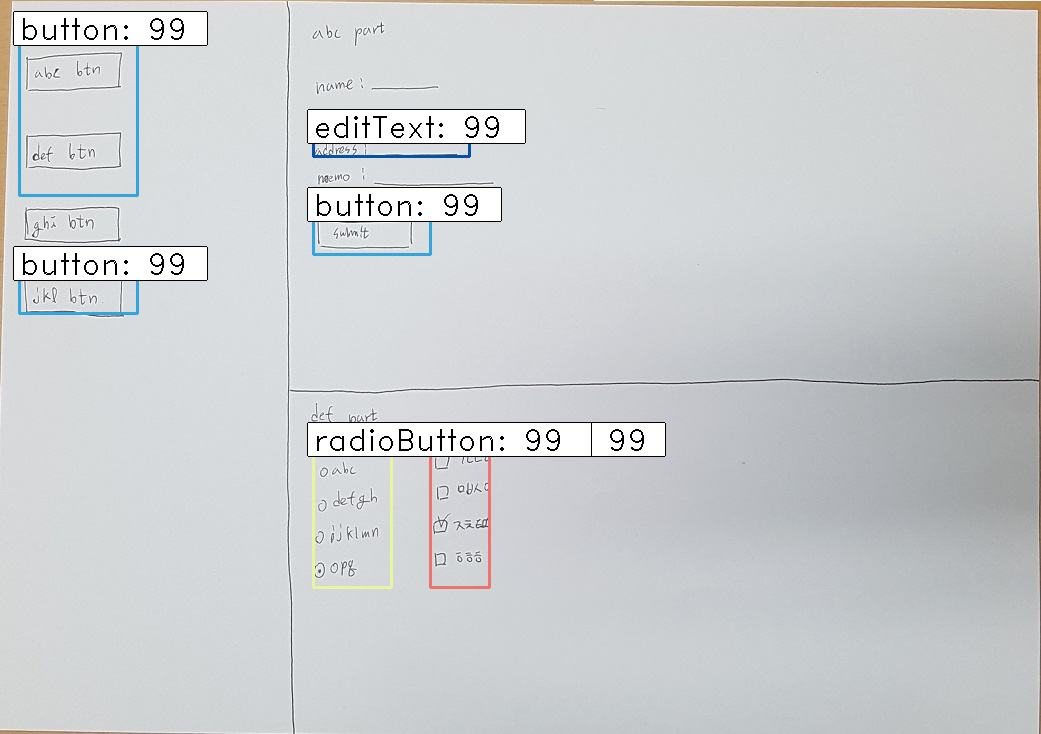 button: 99
abc btn
def btn
ghi btn
button: 99
jkl btn
abc part
name :
editText: 99
address :
memo :
button: 99
submit
def part
radioButton: 99 99
abc
defgh
ijklmn
opq
ㅁㅂㅅㅇ
ㅈㅊㅋㅌㅍ
ㅎㅎㅎ